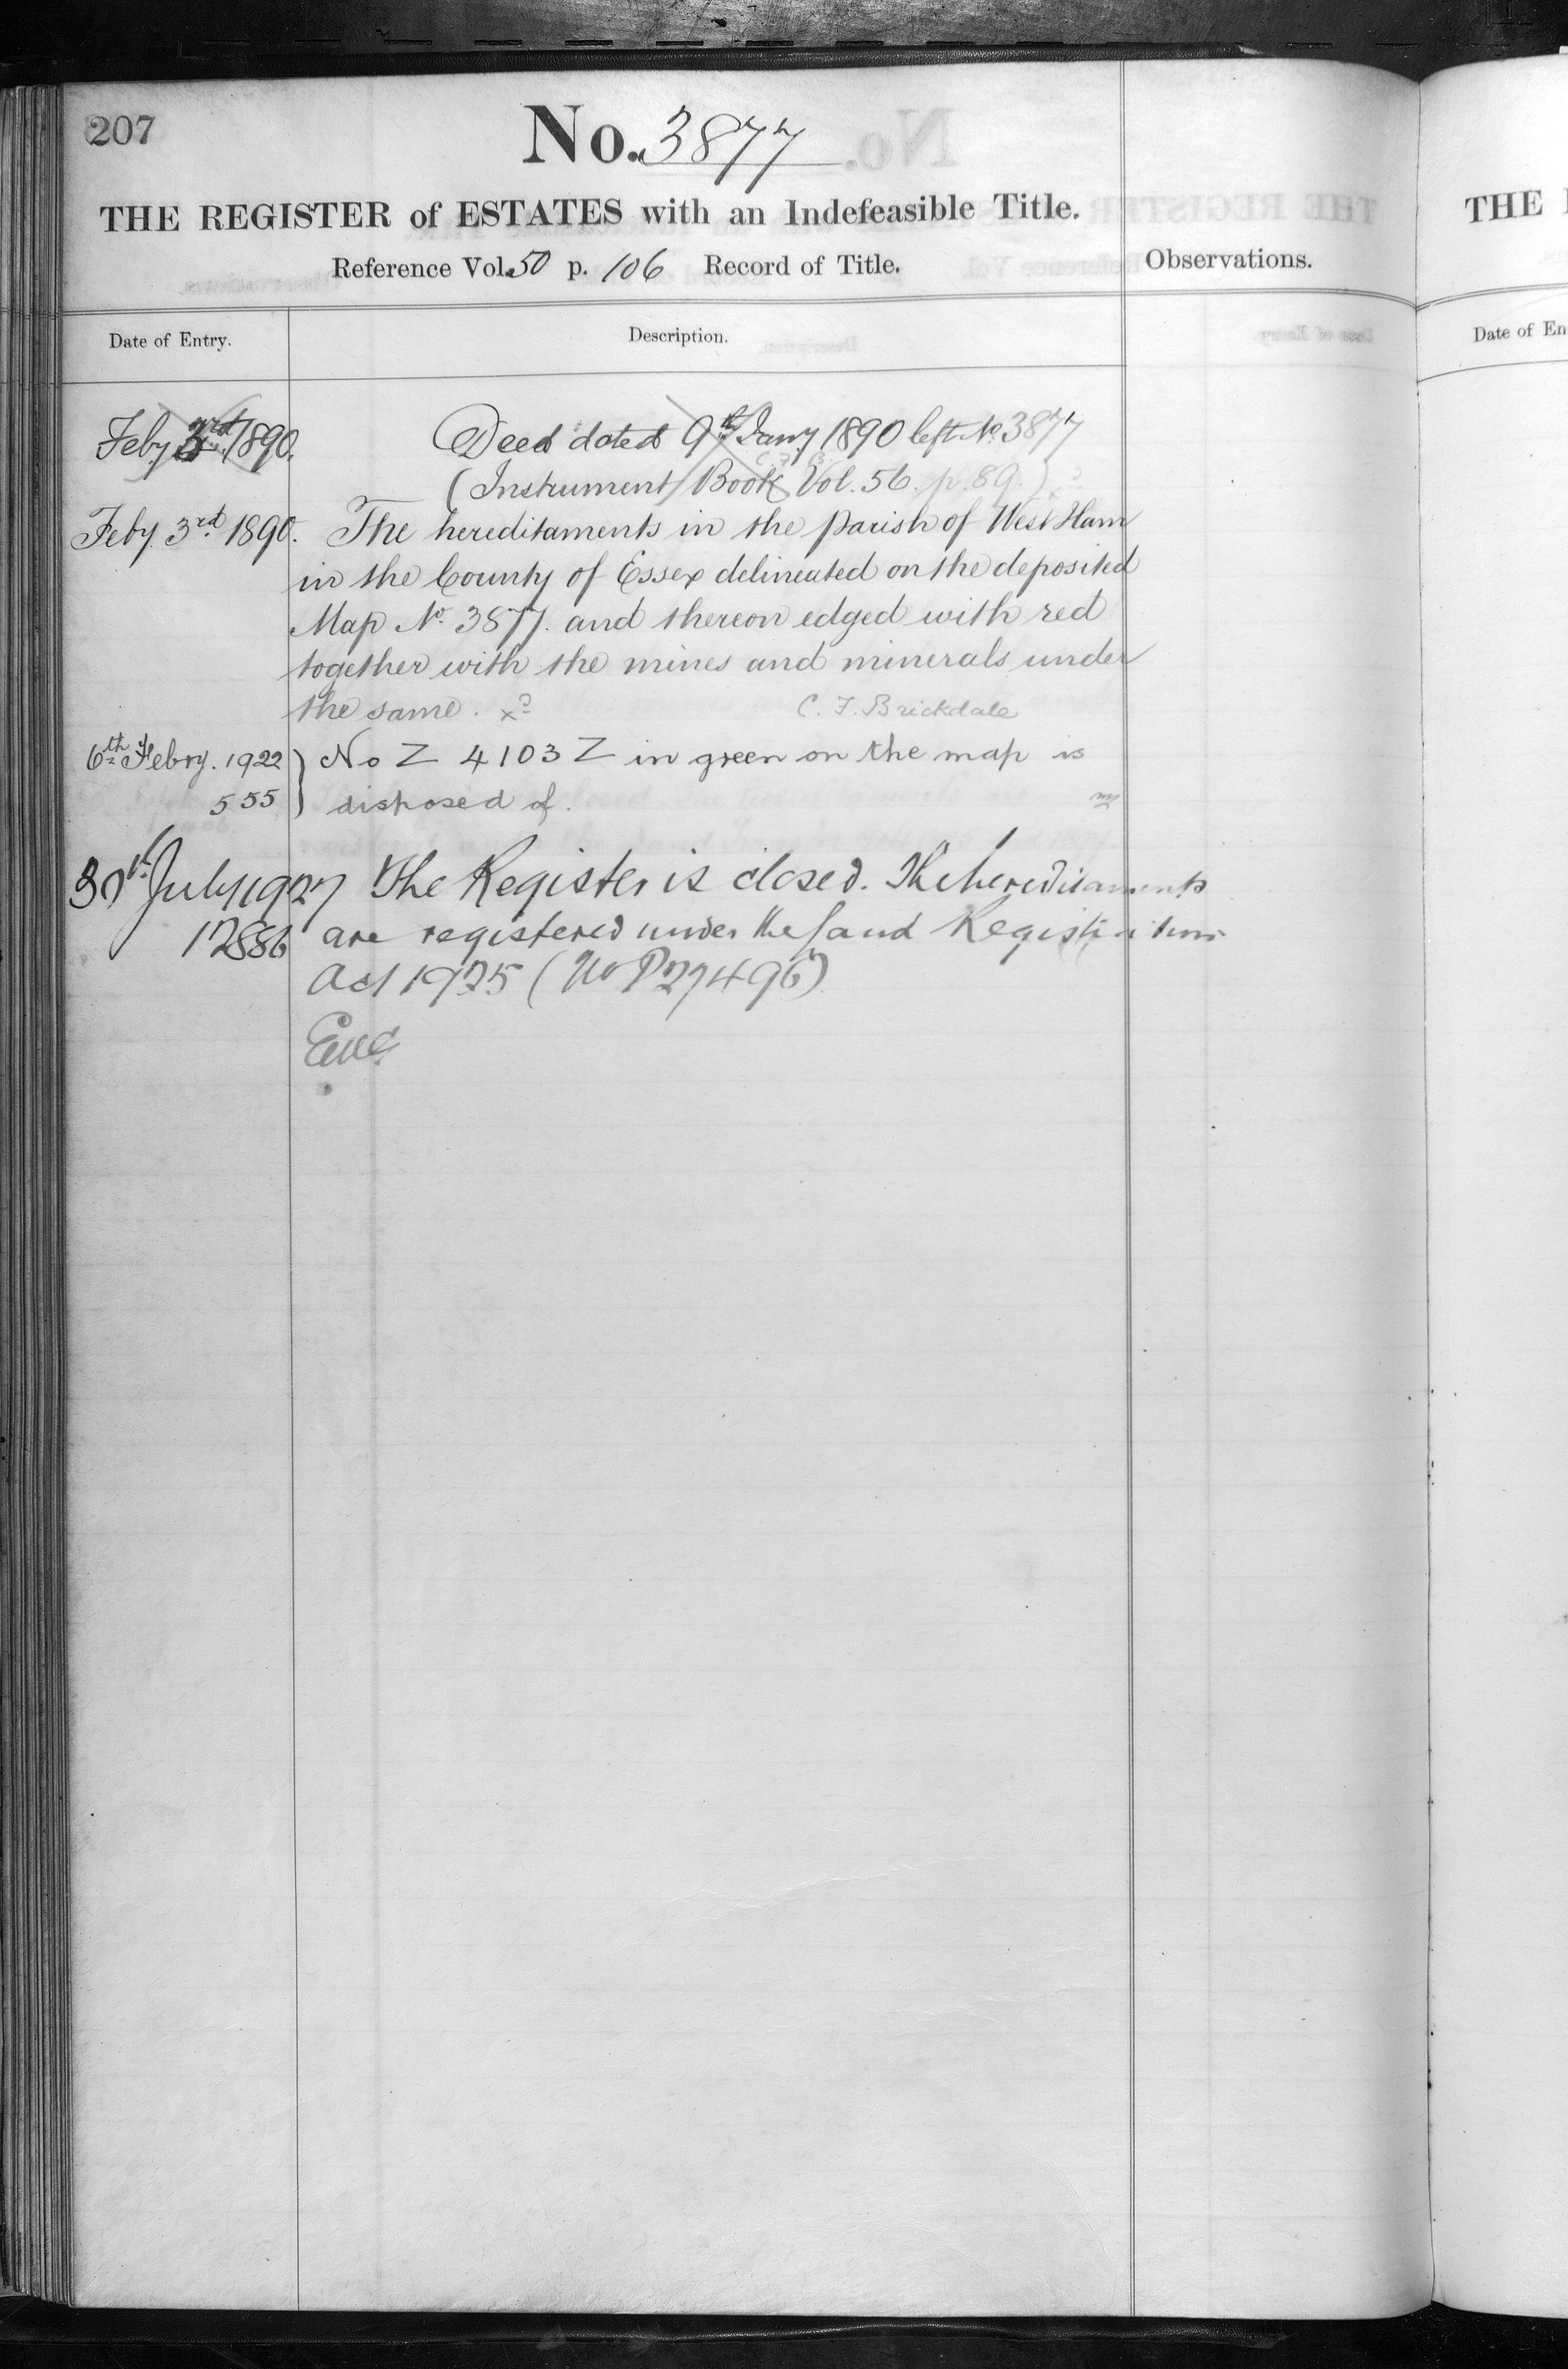 207
No. 3877
THE REGISTER of ESTATES with an Indefeasible Title.
Reference Vol. 50 p. 106 Record of Title.
Observations.
THE
Date of Entry.
Description.
Date of En
Feby 3rd 1890. Deed dated 9th Jany 1890 left No. 3877
(Instrument Book Vol. 56. p. 89.)
Feby. 3rd 1890. The hereditaments in the parish of West Ham
in the County of Essex delineated on the deposited
Map No. 3877. and thereon edged with red
together with the mines and minerals under
the same. C. F. Brickdale
6th Febry. 1922 } No Z 4103 Z in green on the map is
555 } disposed of.
July 1927 The Register is closed. The hereditaments
12886 are registered under the Land Registration
Act 1925 (No P27496)